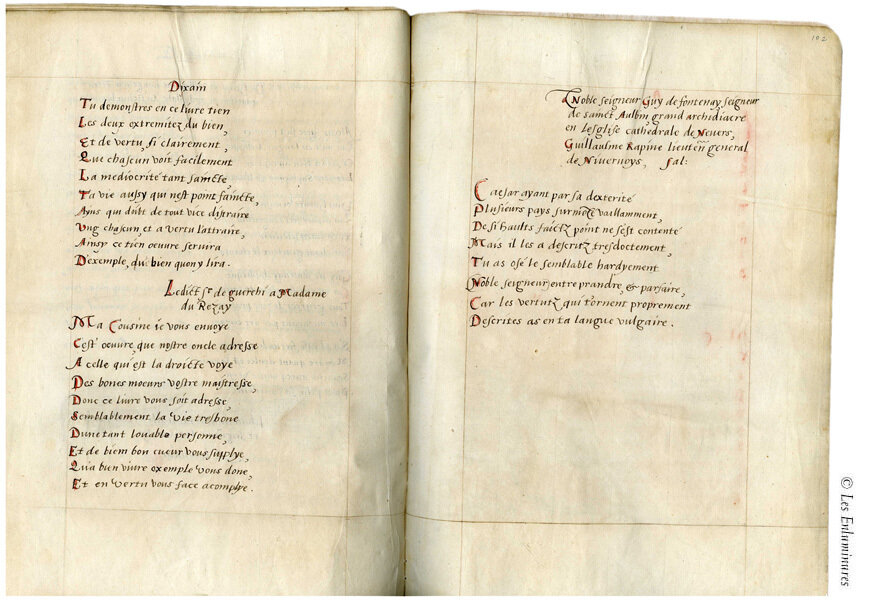 Dixain
Tu demonstres en ce livre tien
Les deux extremitez du bien,
Et de vertu, si clairement,
Que chascun voit facilement
La mediocrité tant saincte,
Ta vie aussy qui nest point faincte,
Ayns qui duict de tout vice distraire
Ung chascun, et a vertu lattraire,
Ainsy ce tien oeuvre servira
Dexemple, du bien quon y lira.
Ledict sr. de guerchi a Madame
du Rezay
Ma Cousine ie vous envoye
Cest oeuvre, que nostre oncle adresse
A celle qui est la droicte voye
Des bones moeurs vostre maistresse,
Donc ce livre vous soit adresse,
Semblablement la vie tresbone
Dune tant louable personne,
Et de biem bon cueur vous supplye,
Qu'a bien vivre exemple vous done,
Et en vertu vous face acomplye.
102
A Noble seigneur Guy de fontenay, seigneur
de sainct Aulbin, grand archidiacre
en lesglise cathedrale de Nevers,
Guillaulme Rapine lieuten̄ general
de Nivernoys, Sal:
Caesar ayant par sa dexterité
Plusieurs pays surmotez vaillamment,
De si haults faictz point ne sest contenté
Mais il les a descritz tresdoctement,
Tu as osé le semblable hardyement
Noble seigneur entreprandre, & parfaire,
Car les vertutz qui tornent proprement
Descrites as en ta langue vulgaire.
© Les Enluminures